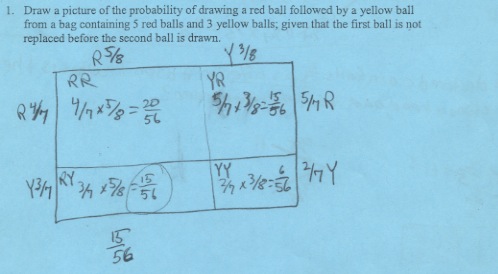 1. Draw a picture of the probability of drawing a red ball followed by a yellow ball
from a bag containing 5 red balls and 3 yellow balls; given that the first ball is not
replaced before the second ball is drawn.
R 5/8 Y 3/8
RR YR
R 4/7 4/7 x 5/8 = 20/56 5/7 x 3/8 = 15/56 5/7 R
RY YY
Y 3/7 3/7 x 5/8 = 15/56 2/7 x 3/8 = 6/56 2/7 Y
15/56